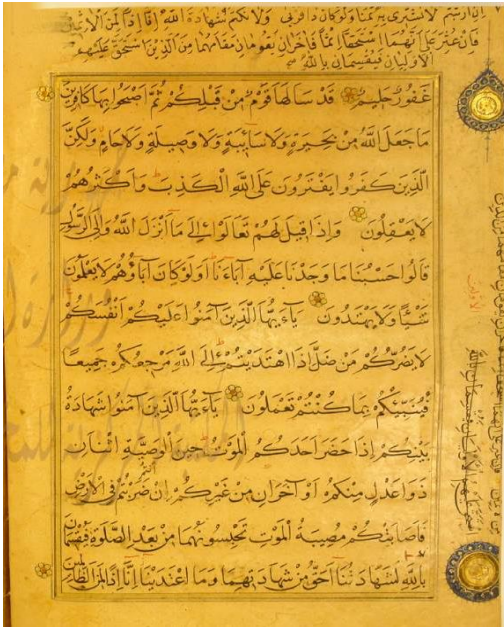 اِنِ ارْتَبْتُمْ لَا نَشْتَرِى بِهِ ثَمَنًا وَلَوْ كَانَ ذَا قُرْبٰى وَلَا نَكْتُمُ شَهَادَةَ اللّٰهِ اِنَّا اِذًا لَمِنَ الْاٰثِمِينَ
فَاِنْ عُثِرَ عَلٰى اَنَّهُمَا اسْتَحَقَّا اِثْمًا فَاٰخَرَانِ يَقُومَانِ مَقَامَهُمَا مِنَ الَّذِينَ اسْتَحَقَّ عَلَيْهِمُ
الْاَوْلَيَانِ فَيُقْسِمَانِ بِاللّٰهِ
غَفُورٌ حَلِيمٌ قَدْ سَاَلَهَا قَوْمٌ مِنْ قَبْلِكُمْ ثُمَّ اَصْبَحُوا بِهَا كَافِرِينَ
مَا جَعَلَ اللّٰهُ مِنْ بَحِيرَةٍ وَلَا سَائِبَةٍ وَلَا وَصِيلَةٍ وَلَا حَامٍ وَلٰكِنَّ
الَّذِينَ كَفَرُوا يَفْتَرُونَ عَلَى اللّٰهِ الْكَذِبَ وَاَكْثَرُهُمْ
لَا يَعْقِلُونَ وَاِذَا قِيلَ لَهُمْ تَعَالَوْا اِلٰى مَا اَنْزَلَ اللّٰهُ وَاِلَى الرَّسُولِ
قَالُوا حَسْبُنَا مَا وَجَدْنَا عَلَيْهِ اٰبَاءَنَا اَوَلَوْ كَانَ اٰبَاؤُهُمْ لَا يَعْلَمُونَ
شَيْئًا وَلَا يَهْتَدُونَ يَاءَيُّهَا الَّذِينَ اٰمَنُوا عَلَيْكُمْ اَنْفُسَكُمْ
لَا يَضُرُّكُمْ مَنْ ضَلَّ اِذَا اهْتَدَيْتُمْ اِلَى اللّٰهِ مَرْجِعُكُمْ جَمِيعًا
فَيُنَبِّئُكُمْ بِمَا كُنْتُمْ تَعْمَلُونَ يَاءَيُّهَا الَّذِينَ اٰمَنُوا شَهَادَةُ
بَيْنِكُمْ اِذَا حَضَرَ اَحَدَكُمُ الْمَوْتُ حِينَ الْوَصِيَّةِ اثْنَانِ
ذَوَا عَدْلٍ مِنْكُمْ اَوْ اٰخَرَانِ مِنْ غَيْرِكُمْ اِنْ اَنْتُمْ ضَرَبْتُمْ فِى الْاَرْضِ
فَاَصَابَتْكُمْ مُصِيبَةُ الْمَوْتِ تَحْبِسُونَهُمَا مِنْ بَعْدِ الصَّلٰوةِ فَيُقْسِمَانِ
بِاللّٰهِ لَشَهَادَتُنَا اَحَقُّ مِنْ شَهَادَتِهِمَا وَمَا اعْتَدَيْنَا اِنَّا اِذًا لَمِنَ الظَّالِمِينَ